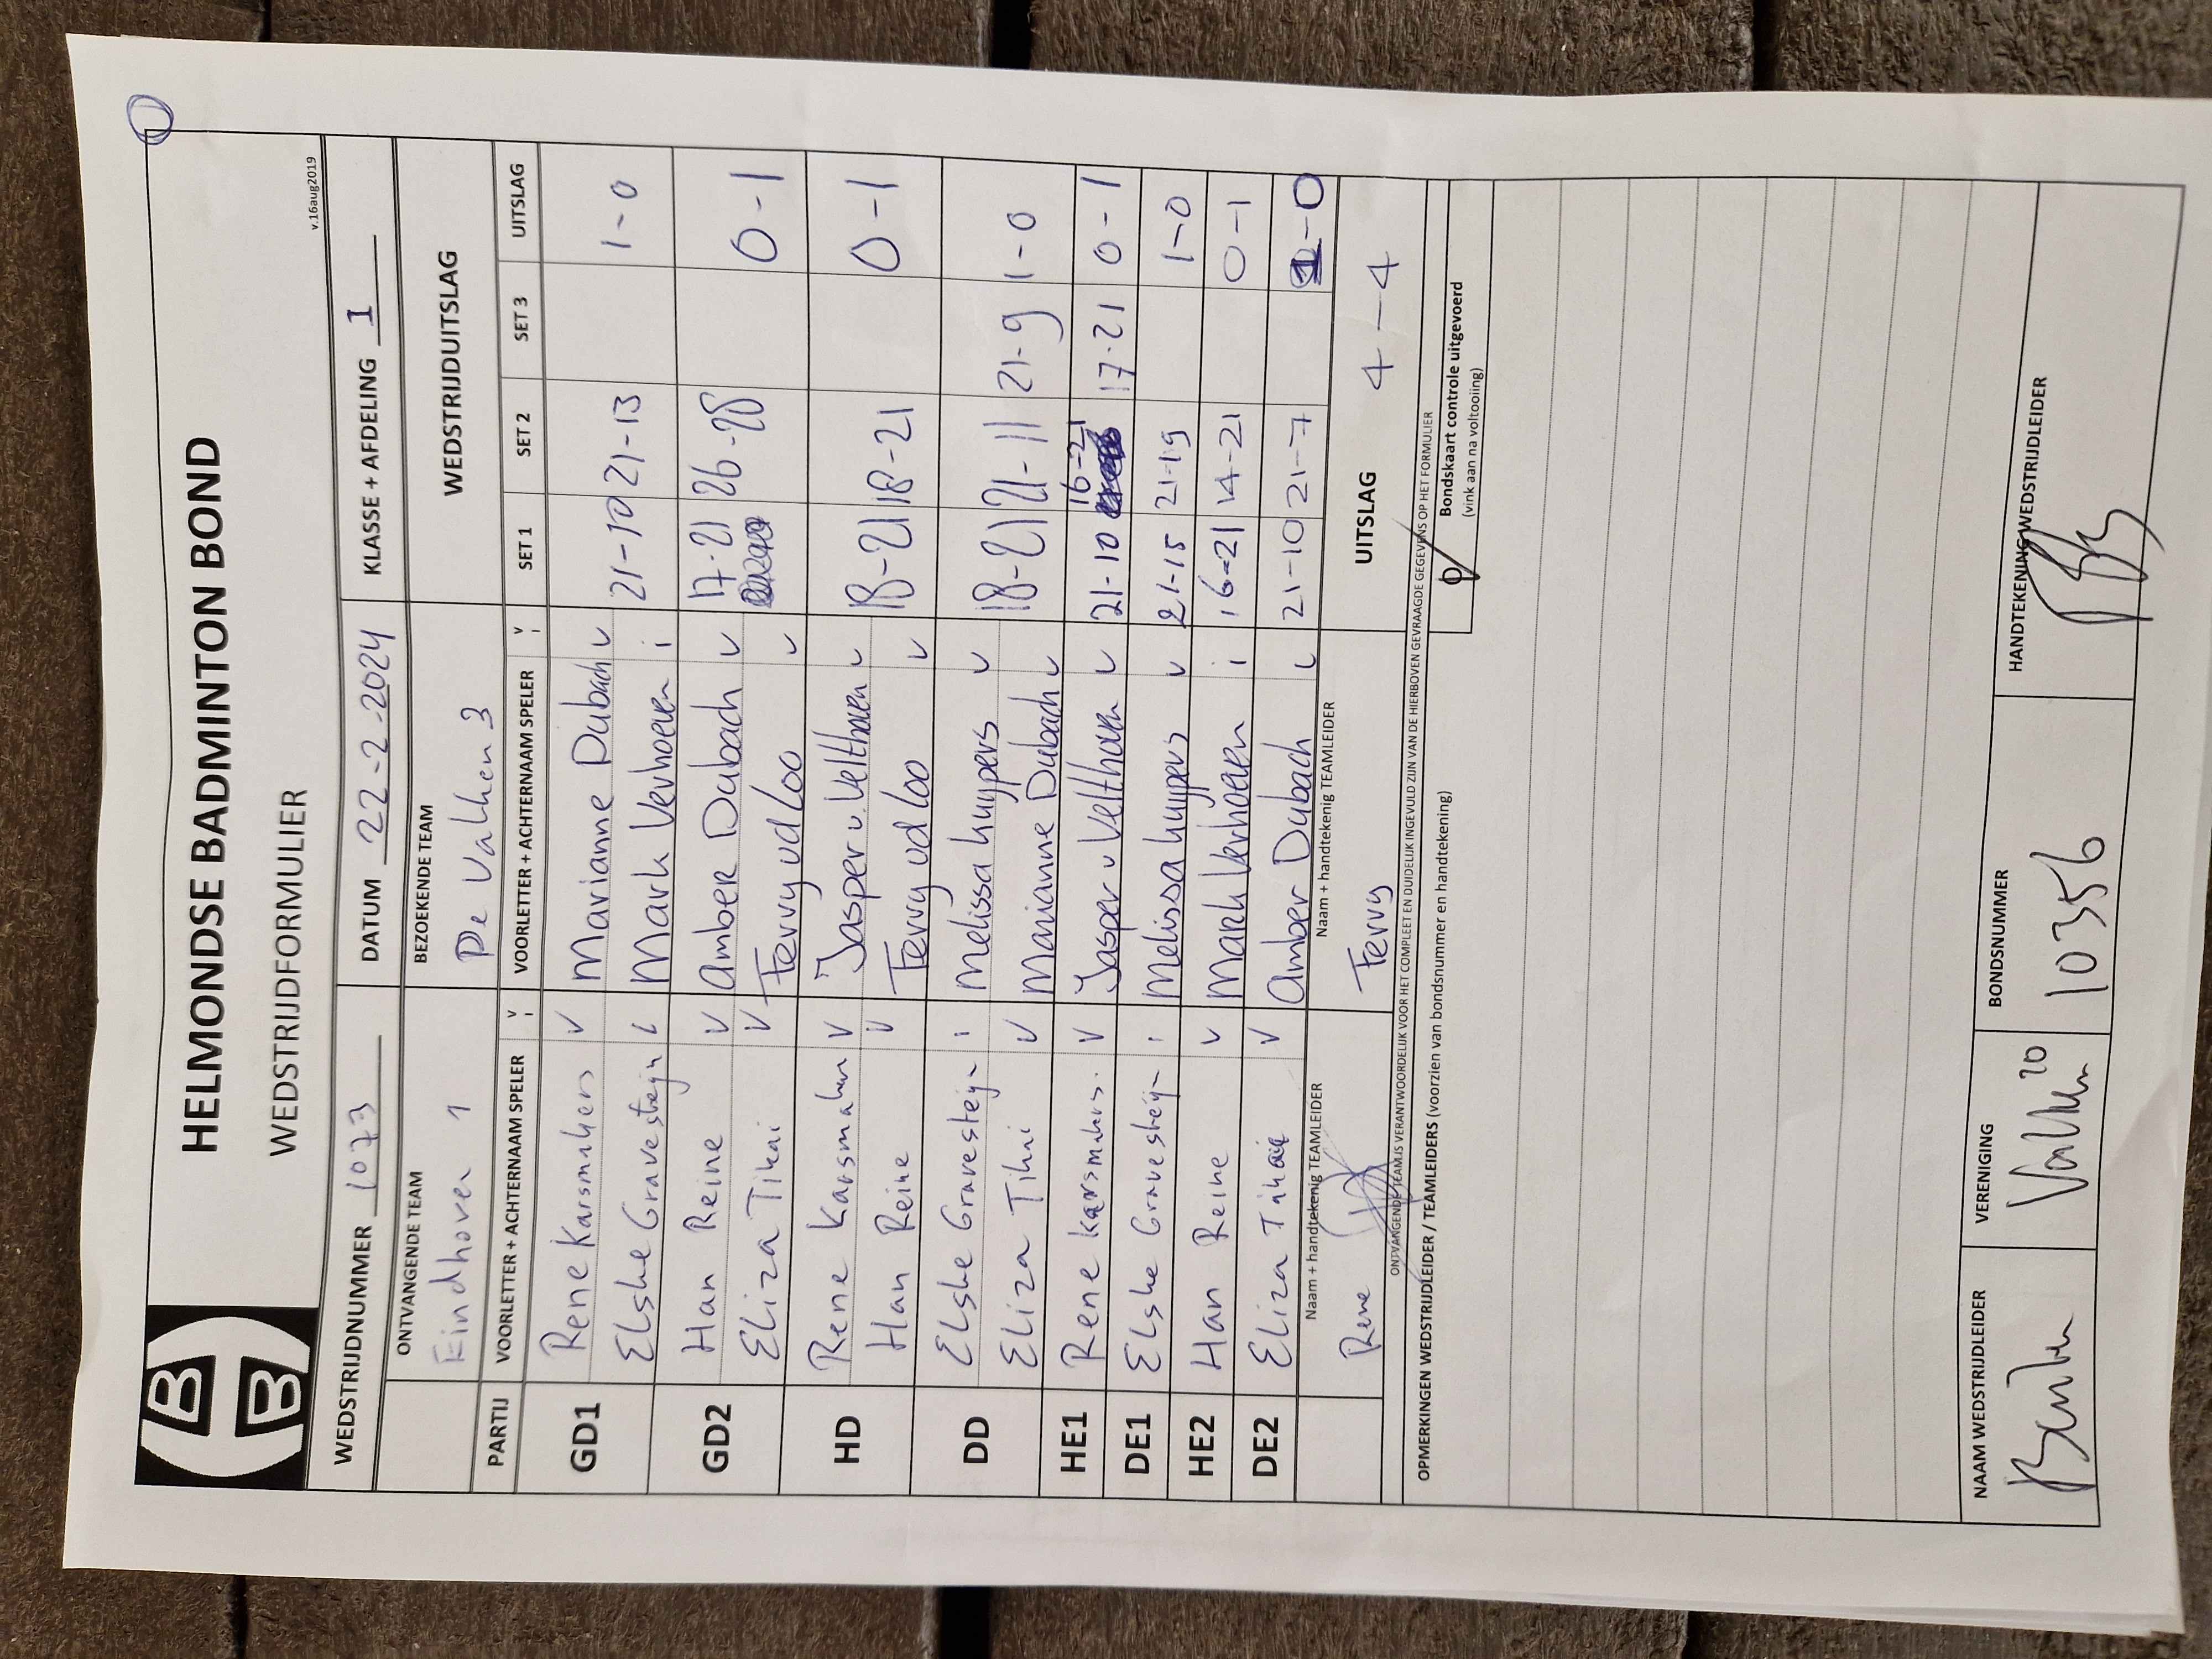 HELMONDSE BADMINTON BOND
WEDSTRIJDFORMULIER
v.16aug2019
WEDSTRIJDNUMMER 1073 DATUM 22-2-2024 KLASSE + AFDELING 1
ONTVANGENDE TEAM BEZOEKENDE TEAM WEDSTRIJDUITSLAG
Eindhoven 1 De Valken 3
PARTIJ VOORLETTER + ACHTERNAAM SPELER V i VOORLETTER + ACHTERNAAM SPELER V i SET 1 SET 2 SET 3 UITSLAG
GD1 Rene Karsmakers V Marianne Dubach V
Elske Gravesteijn i Mark Verhoeven i 21-10 21-13 1-0
GD2 Han Reine V Amber Dubach V 17-21 26-28
Eliza Tikai V Ferry vd Loo V 0-1
HD Rene Karsmakers V Jasper v. Velthoven V
Han Reine V Ferry vd Loo V 18-21 18-21 0-1
DD Elske Gravesteijn i Melissa Kuypers V
Eliza Tikai V Marianne Dubach V 18-21 21-11 21-9 1-0
HE1 Rene Karsmakers. V Jasper v Velthoven V 21-10 16-21 17-21 0-1
DE1 Elske Gravesteijn i Melissa Kuypers V 21-15 21-19 1-0
HE2 Han Reine V Mark Verhoeven i 16-21 14-21 0-1
DE2 Eliza Tikai V Amber Dubach V 21-10 21-7 1-0
Naam + handtekenig TEAMLEIDER Naam + handtekenig TEAMLEIDER UITSLAG 4-4
Rene Ferry
ONTVANGENDE TEAM IS VERANTWOORDELIJK VOOR HET COMPLEET EN DUIDELIJK INGEVULD ZIJN VAN DE HIERBOVEN GEVRAAGDE GEGEVENS OP HET FORMULIER
OPMERKINGEN WEDSTRIJDLEIDER / TEAMLEIDERS (voorzien van bondsnummer en handtekening)
Bondskaart controle uitgevoerd
(vink aan na voltooiing)
NAAM WEDSTRIJDLEIDER VERENIGING BONDSNUMMER HANDTEKENING WEDSTRIJDLEIDER
Valken 20 10356